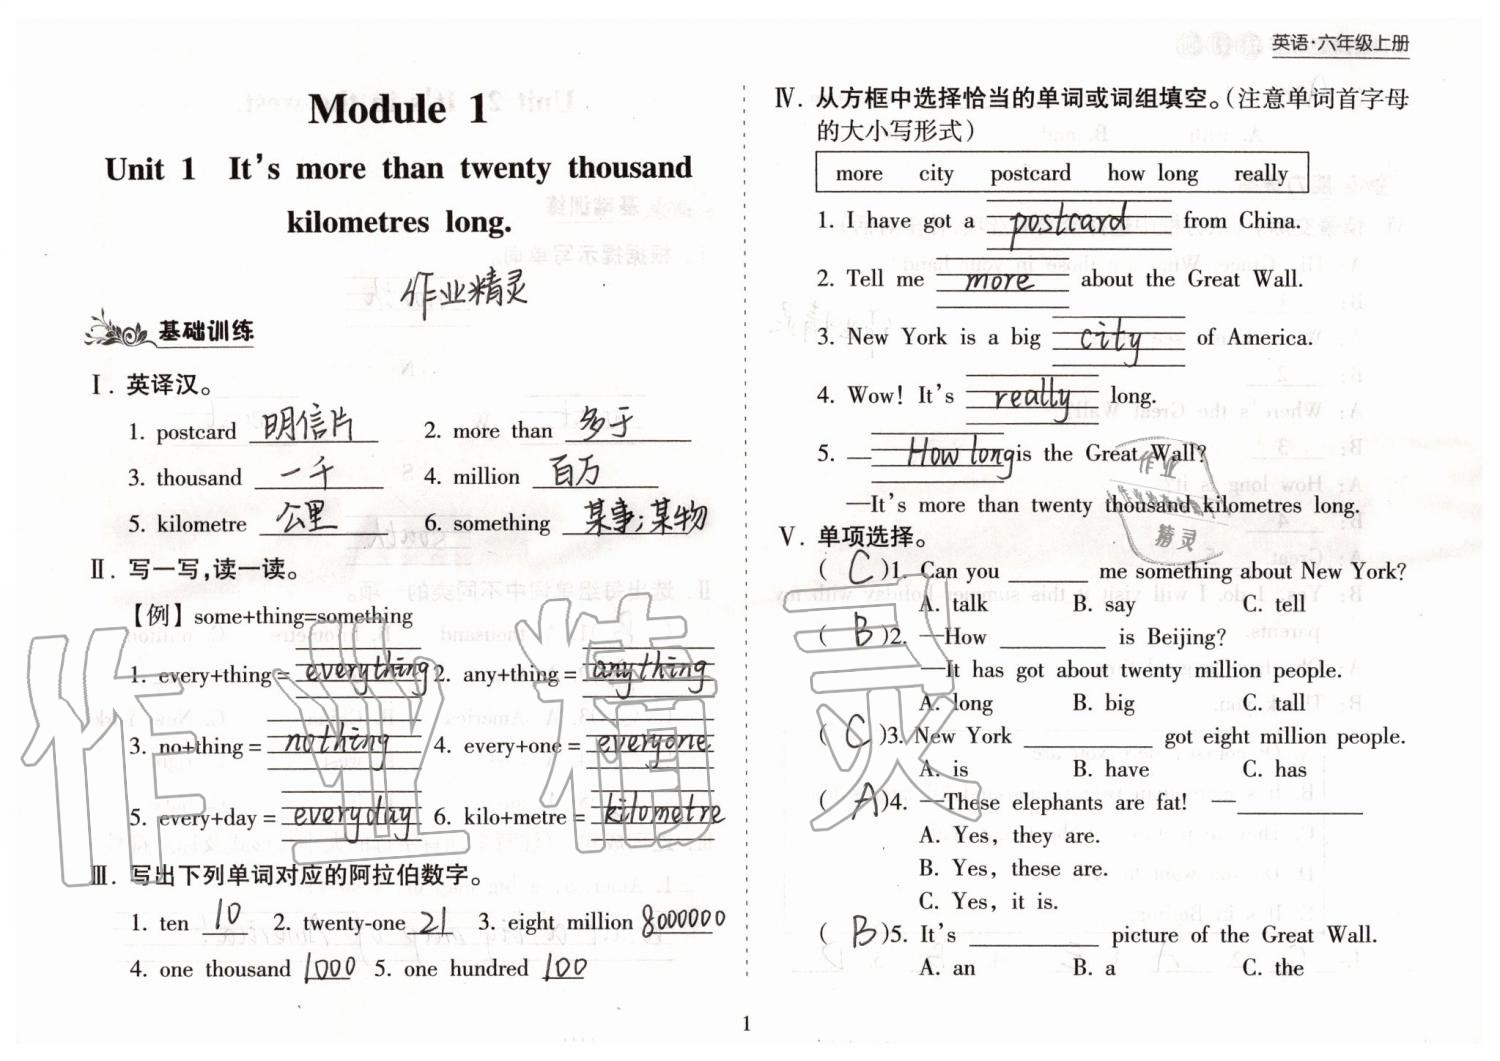 英语·六年级上册
Module 1
Unit 1 It's more than twenty thousand
kilometres long.
作业精灵
基础训练
Ⅰ. 英译汉。
1. postcard 明信片 2. more than 多于
3. thousand 一千 4. million 百万
5. kilometre 公里 6. something 某事;某物
Ⅱ. 写一写,读一读。
【例】some+thing=something
1. every+thing= everything 2. any+thing= anything
3. no+thing= nothing 4. every+one= everyone
5. every+day= everyday 6. kilo+metre= kilometre
Ⅲ. 写出下列单词对应的阿拉伯数字。
1. ten 10 2. twenty-one 21 3. eight million 8000000
4. one thousand 1000 5. one hundred 100
Ⅳ. 从方框中选择恰当的单词或词组填空。(注意单词首字母
的大小写形式)
more city postcard how long really
1. I have got a postcard from China.
2. Tell me more about the Great Wall.
3. New York is a big city of America.
4. Wow! It's really long.
5. — How long is the Great Wall?
—It's more than twenty thousand kilometres long.
Ⅴ. 单项选择。
( C )1. Can you ______ me something about New York?
A. talk B. say C. tell
( B )2. —How ______ is Beijing?
—It has got about twenty million people.
A. long B. big C. tall
( C )3. New York ______ got eight million people.
A. is B. have C. has
( A )4. —These elephants are fat! — ______
A. Yes, they are.
B. Yes, these are.
C. Yes, it is.
( B )5. It's ______ picture of the Great Wall.
A. an B. a C. the
作业精灵
作业
精灵
1